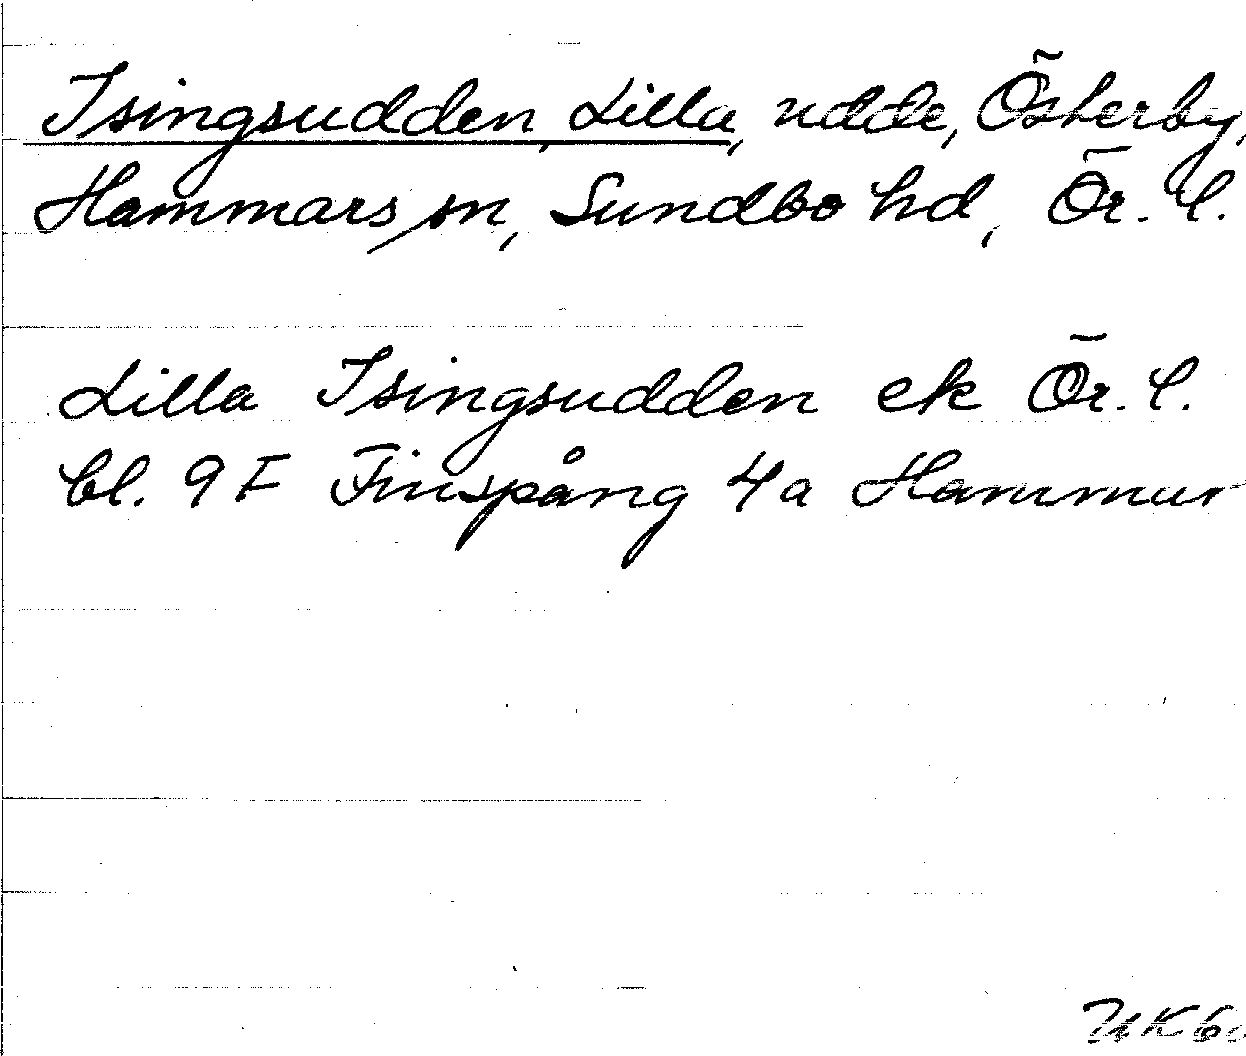 Isingsudden, Lilla, udde, Österby,
Hammars sn, Sundbo hd, Ör. l.
Lilla Isingsudden ek Ör. l.
bl. 9 F Finspång 4a Hammar